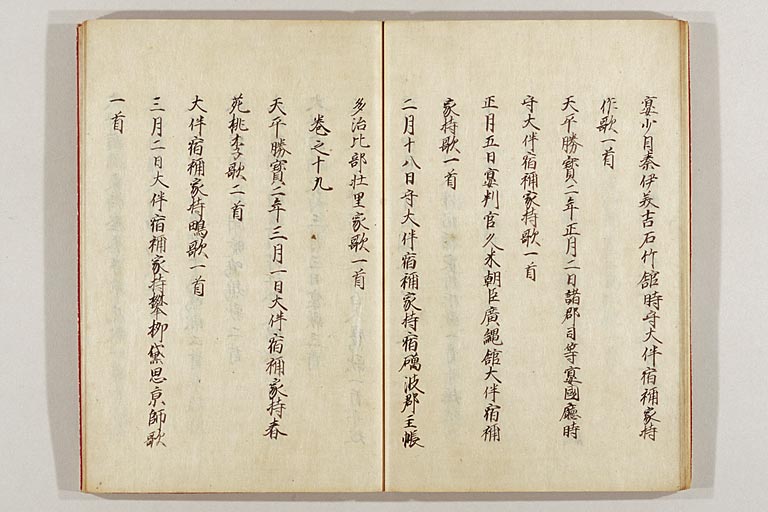 宴少目秦伊美吉石竹舘時守大伴宿祢家持
作歌一首
天平勝寶二年正月二日諸郡司等宴國廳時
守大伴宿祢家持歌一首
正月五日宴判官久米朝臣廣縄舘大伴宿祢
家持歌一首
二月十八日守大伴宿祢家持宿礪波郡主帳
多治比部壮里家歌一首
巻之十九
天平勝寶二年三月一日大伴宿祢家持春
苑桃李歌二首
大伴宿祢家持鴫歌一首
三月二日大伴宿祢家持攀柳黛思京師歌
一首